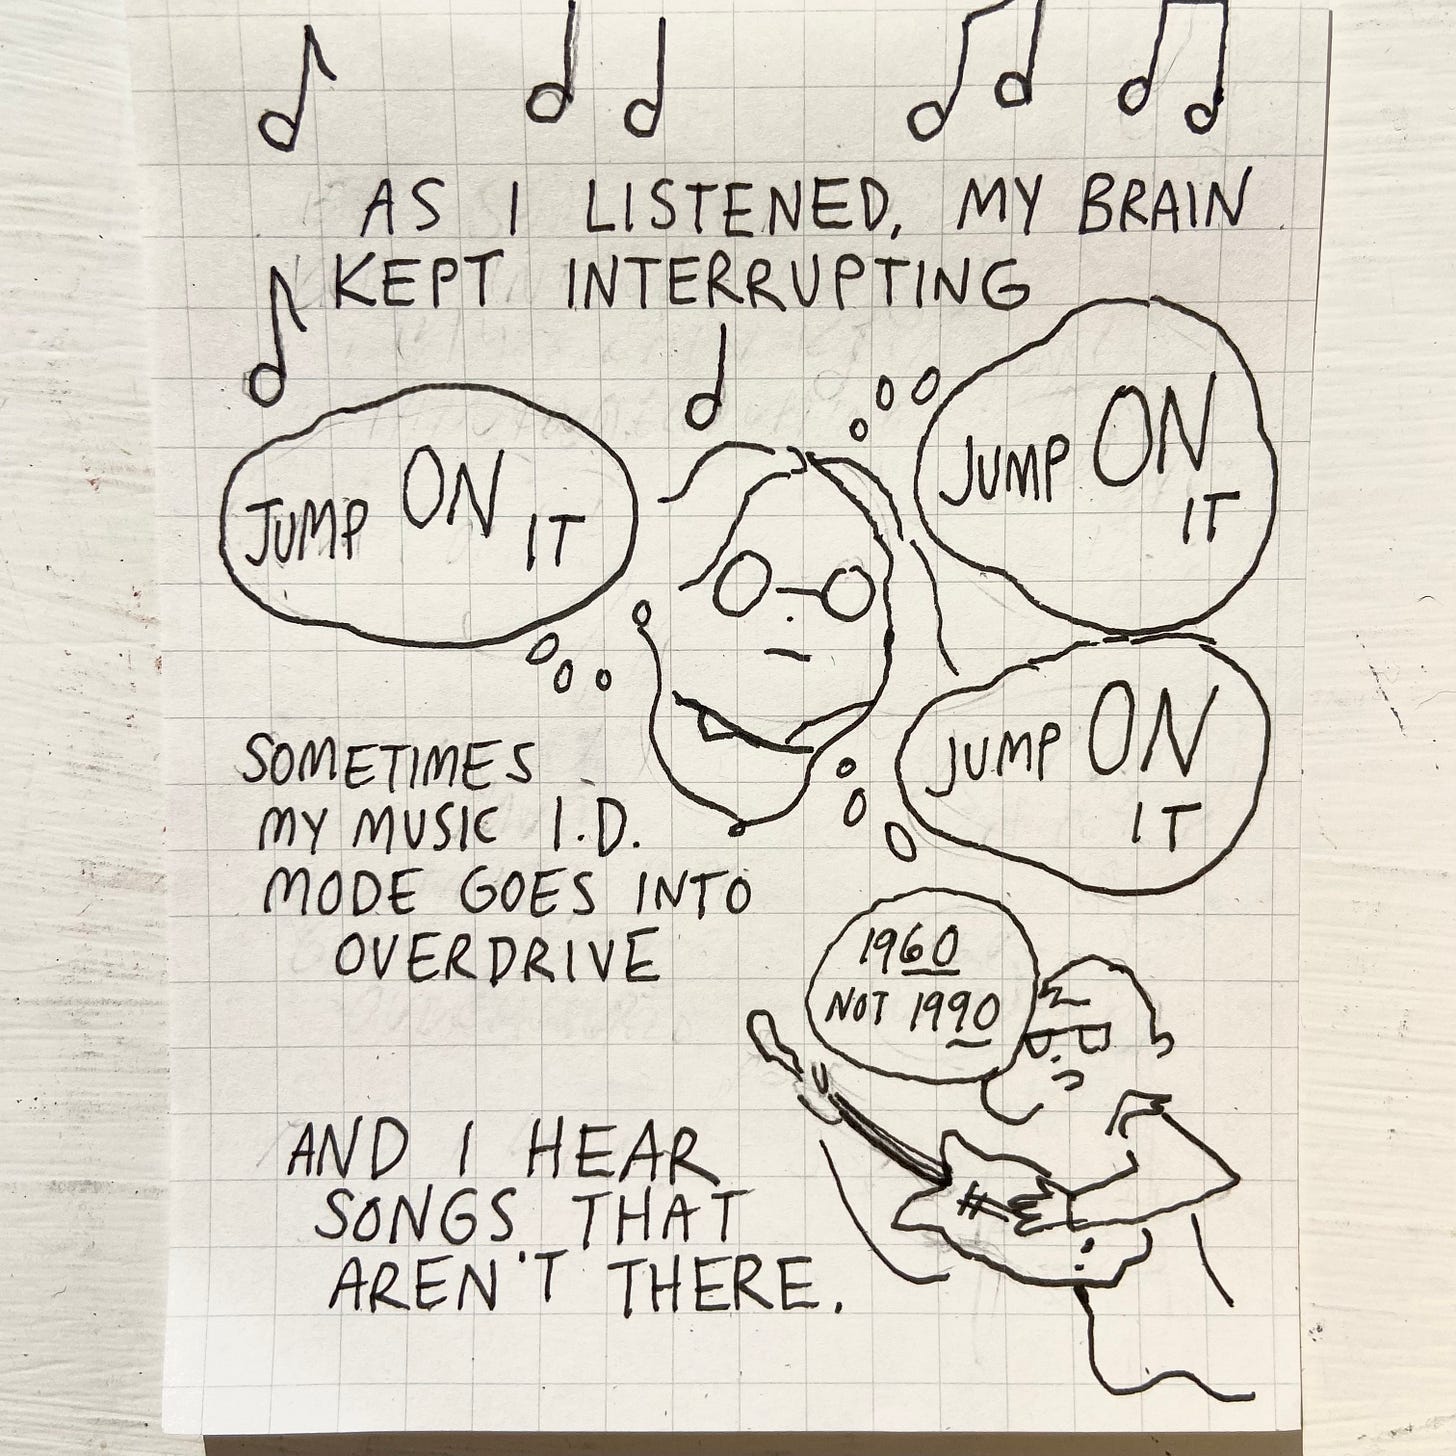 AS I LISTENED, MY BRAIN
KEPT INTERRUPTING
JUMP ON IT
JUMP ON IT
JUMP ON IT
SOMETIMES
MY MUSIC I.D.
MODE GOES INTO
OVERDRIVE
1960
NOT 1990
AND I HEAR
SONGS THAT
AREN'T THERE.